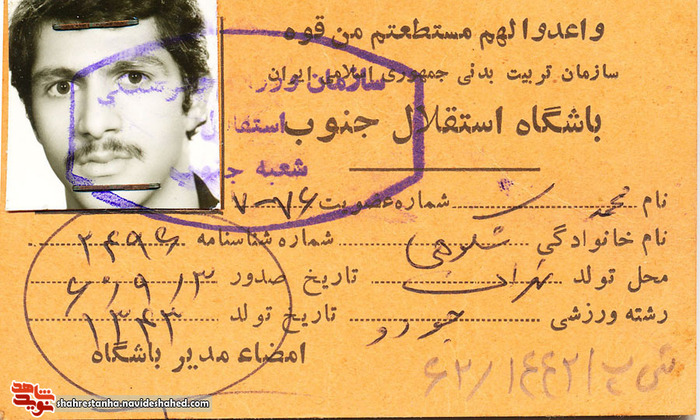 واعدوا لهم مستطعتم من قوه
سازمان تربیت بدنی جمهوری اسلامی ایران
باشگاه استقلال جنوب
نام محمد شماره عضویت ۷۰۷۶
نام خانوادگی شماره شناسنامه
محل تولد تهران تاریخ صدور
رشته ورزشی جودو تاریخ تولد ۱۳۴۳
امضاء مدیر باشگاه
سازمان
استقلال
شعبه
۶۲/۱۴۴۲
شاهد
نوید
shahrestanha.navideshahed.com